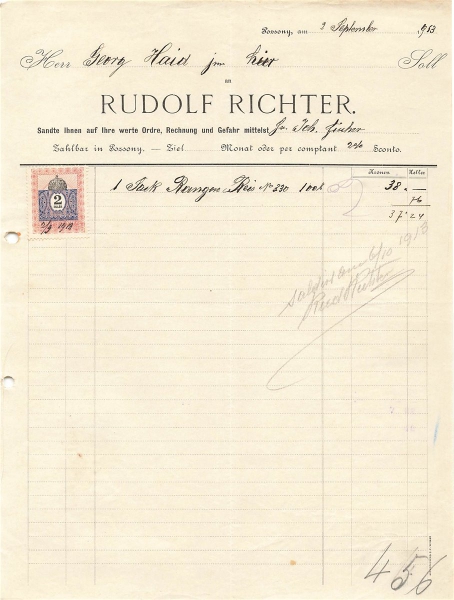 Possony, am 2 September 1913
Herr Georg Haid jun hier Soll
an
RUDOLF RICHTER.
Sandte Ihnen auf Ihre werte Ordre, Rechnung und Gefahr mittelst Joh.
Zahlbar in Possony. — Ziel Monat oder per comptant 2% Sconto.
Kronen Heller
1 Sack Rangon Reis No 330 100 k 38 —
76
37 24
2
2/9 1913
Saldirt am 6/10 1913
Rud Richter
456